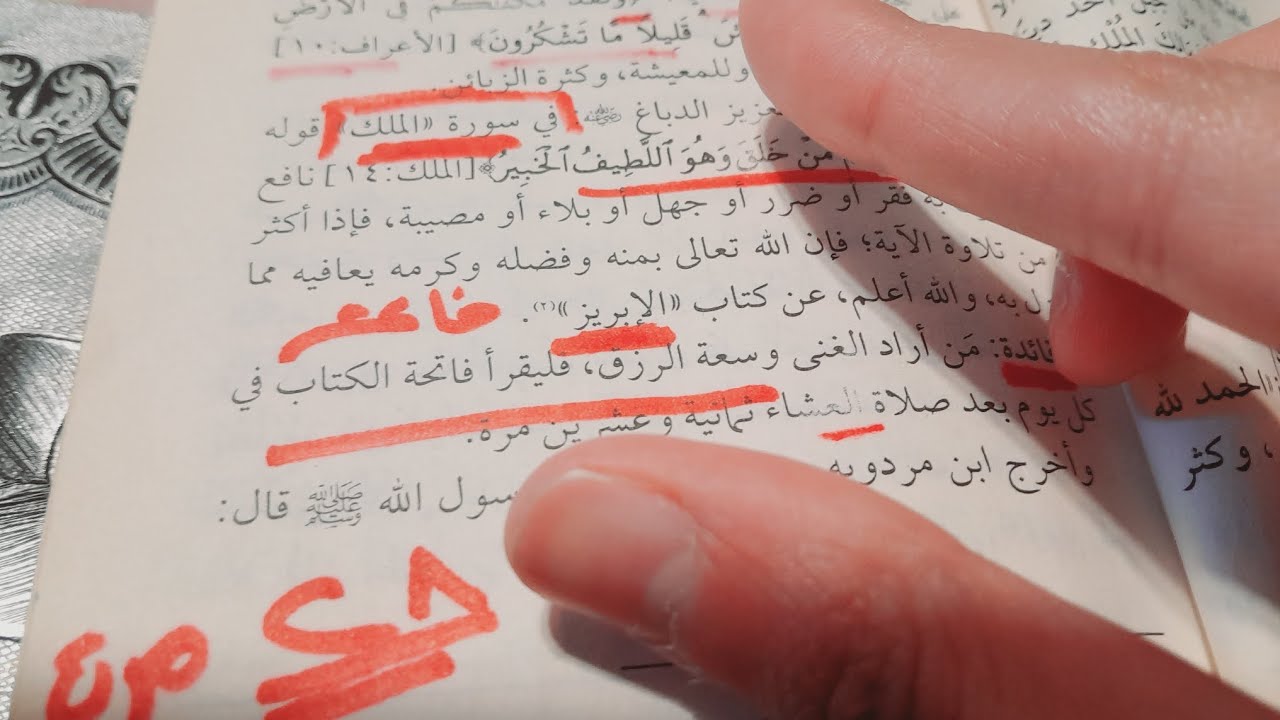 مكنكم في الأرض
قَلِيلًا مَّا تَشْكُرُونَ﴾ [الأعراف: ١٠]
وللمعيشة، وكثرة الزبائن.
الدباغ رضي الله عنه: في سورة «الملك» قوله
مَنْ خَلَقَ وَهُوَ ٱللَّطِيفُ ٱلْخَبِيرُ﴾ [الملك: ١٤] نافع
به فقر أو ضرر أو جهل أو بلاء أو مصيبة، فإذا أكثر
من تلاوة الآية؛ فإن الله تعالى بمنه وفضله وكرمه يعافيه مما
به، والله أعلم، عن كتاب «الإبريز»(٢).
فائدة: مَن أراد الغنى وسعة الرزق، فليقرأ فاتحة الكتاب في
كل يوم بعد صلاة العشاء ثمانية وعشرين مرة.
وأخرج ابن مردويه
الله ﷺ قال:
الملك
الحمد لله
، وكثر